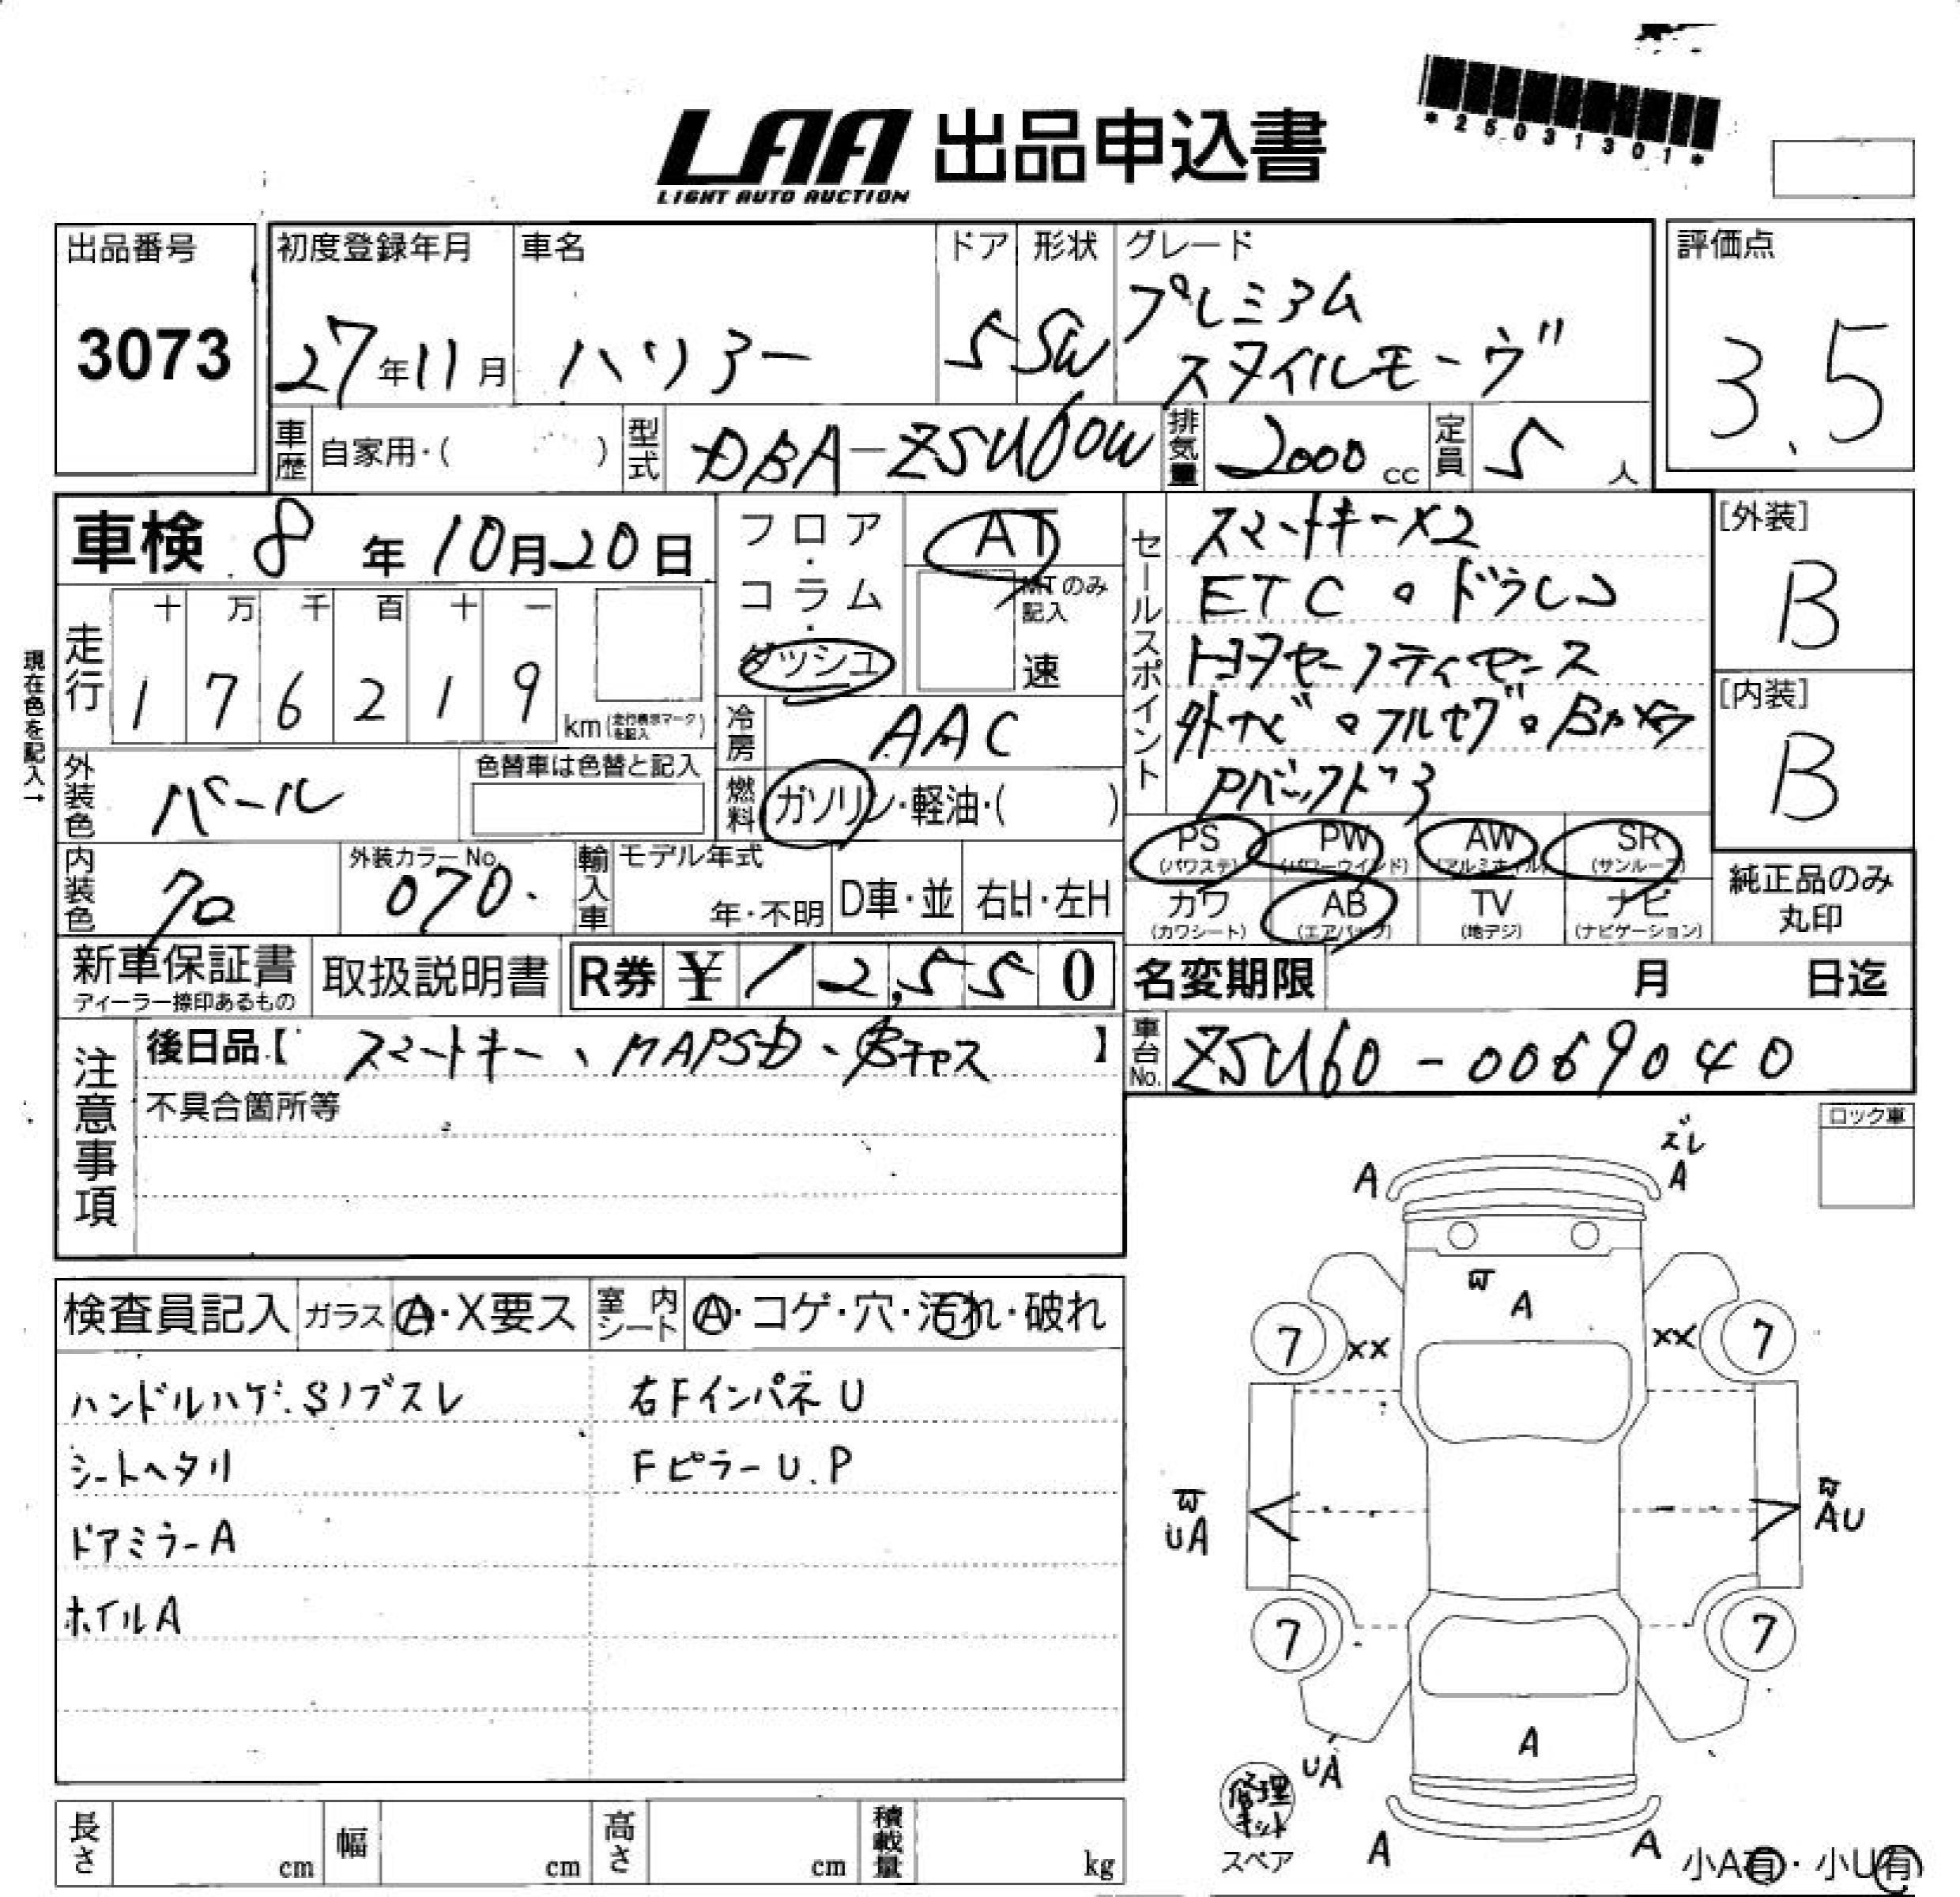 LAA 出品申込書
LIGHT AUTO AUCTION
*25031301*
出品番号
3073
初度登録年月
27年11月
車名
ハリアー
ドア
5
形状
SW
グレード
プレミアム
スタイルモーヴ
評価点
3.5
車歴
自家用・( )
型式
DBA-ZSU60W
排気量
2000cc
定員
5人
車検 8年10月20日
フロア・コラム・ダッシュ
AT
MTのみ記入
速
セールスポイント
スマートキーX2
ETC。ドラレコ
トヨタセーフティセンス
外ナビ。フルセグ。Bカメラ
Pバックドア
[外装]
B
[内装]
B
現在色を記入→
走行
十 万 千 百 十 一
1 7 6 2 1 9
km(走行表示マークを記入)
冷房
AAC
外装色
パール
色替車は色替と記入
燃料
ガソリン・軽油・( )
PS
(パワステ)
PW
(パワーウインド)
AW
(アルミホイル)
SR
(サンルーフ)
内装色
クロ
外装カラーNo.
070.
輸入車
モデル年式
年・不明
D車・並
右H・左H
カワ
(カワシート)
AB
(エアバッグ)
TV
(地デジ)
ナビ
(ナビゲーション)
純正品のみ
丸印
新車保証書
ディーラー捺印あるもの
取扱説明書
R券 ¥12,550
名変期限 月 日迄
注意事項
後日品【スマートキー、MAPSD、】
不具合箇所等
車台No.
ZSU60-0069040
ロック車
ズレ
A A
W
A
7 XX XX 7
W
UA
W
AU
7 7
A
UA
A A
検査員記入
ガラス
A・X要ス
室内シート
A・コゲ・穴・汚れ・破れ
ハンドルハゲ.Sノブスレ
右FインパネU
シートヘタリ
FピラーU.P
ドアミラーA
ホイルA
修理キット
スペア
小A有・小U有
長さ cm
幅 cm
高さ cm
積載量 kg